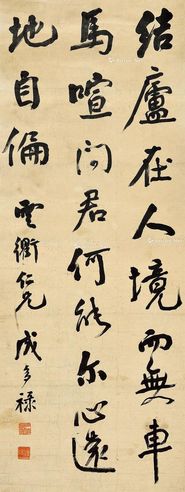 結廬在人境而無車
馬喧問君何能尔心遠
地自偏
雲衢仁兄 成多祿